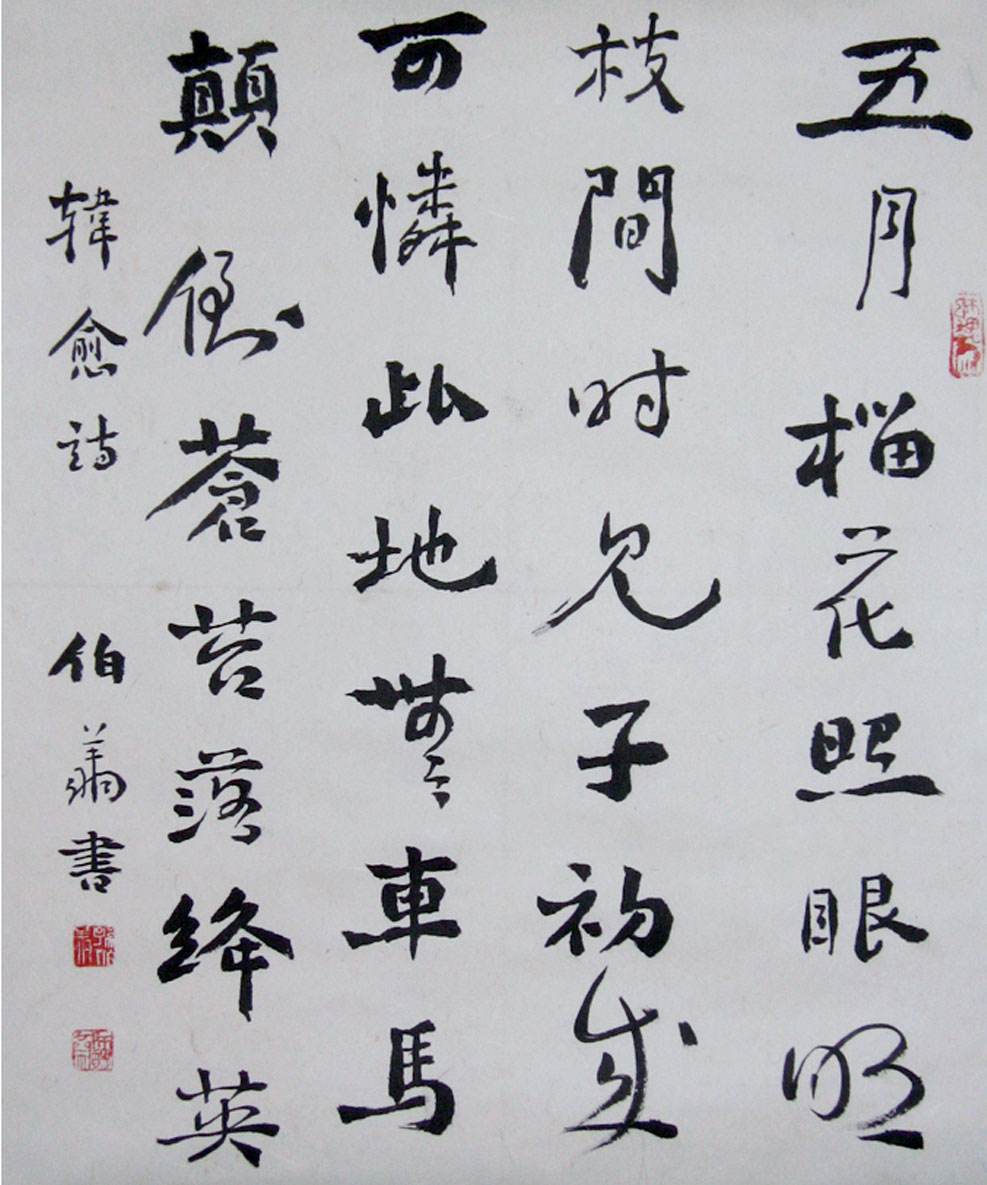 五月榴花照眼明
枝間时见子初成
可憐此地無車馬
顛倒蒼苔落絳英
韓愈詩 伯翔書